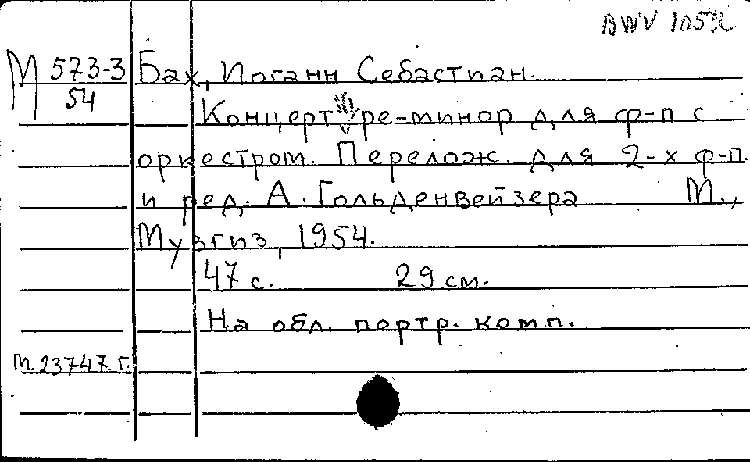 BWV 1052
М 573-3
54
Бах, Иоганн Себастиан.
Концерт ре-минор для ф-п с
оркестром. Перелож. для 2-х ф-п
и ред. А. Гольденвейзера М.,
Музгиз, 1954.
47 с. 29 см.
На обл. портр. комп.
М. 23747 г.